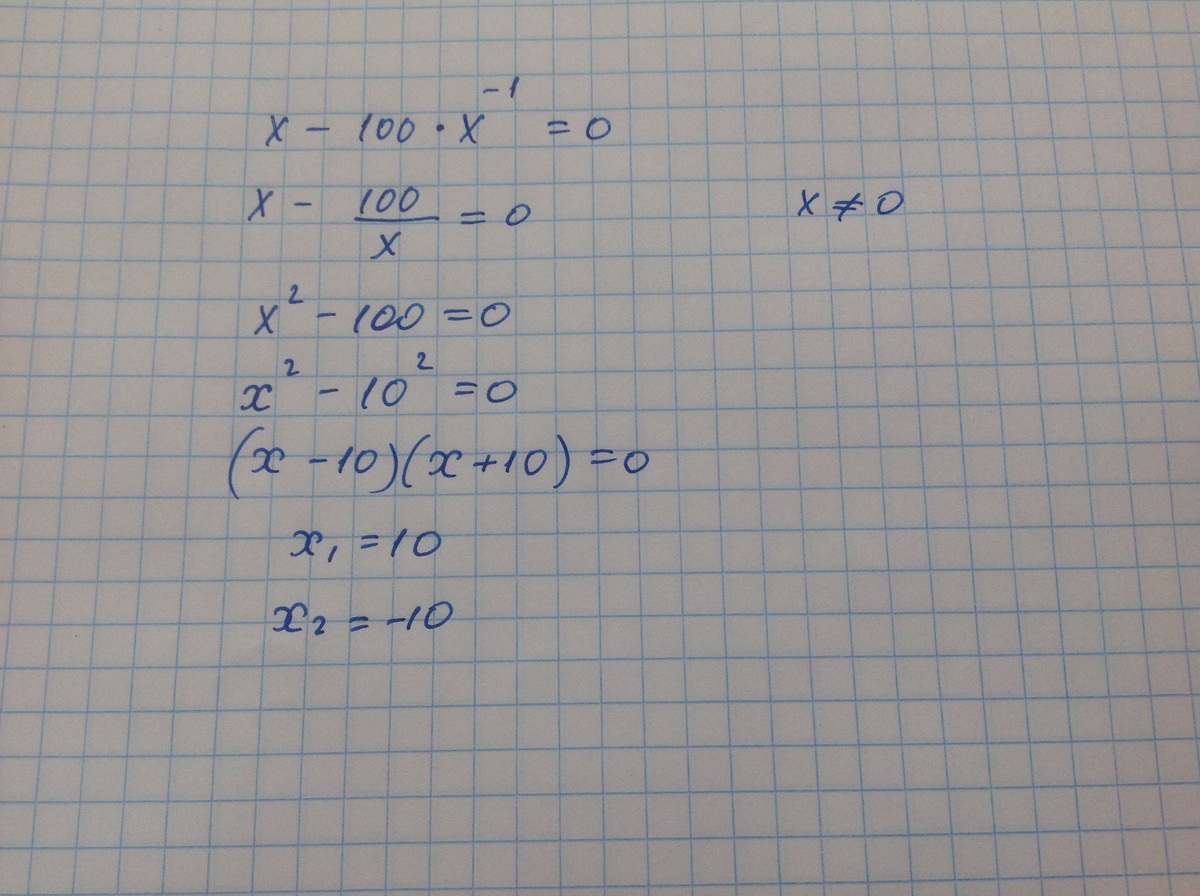 x - 100 · x⁻¹ = 0
x - 100/x = 0    x ≠ 0
x² - 100 = 0
x² - 10² = 0
(x - 10)(x + 10) = 0
x₁ = 10
x₂ = -10